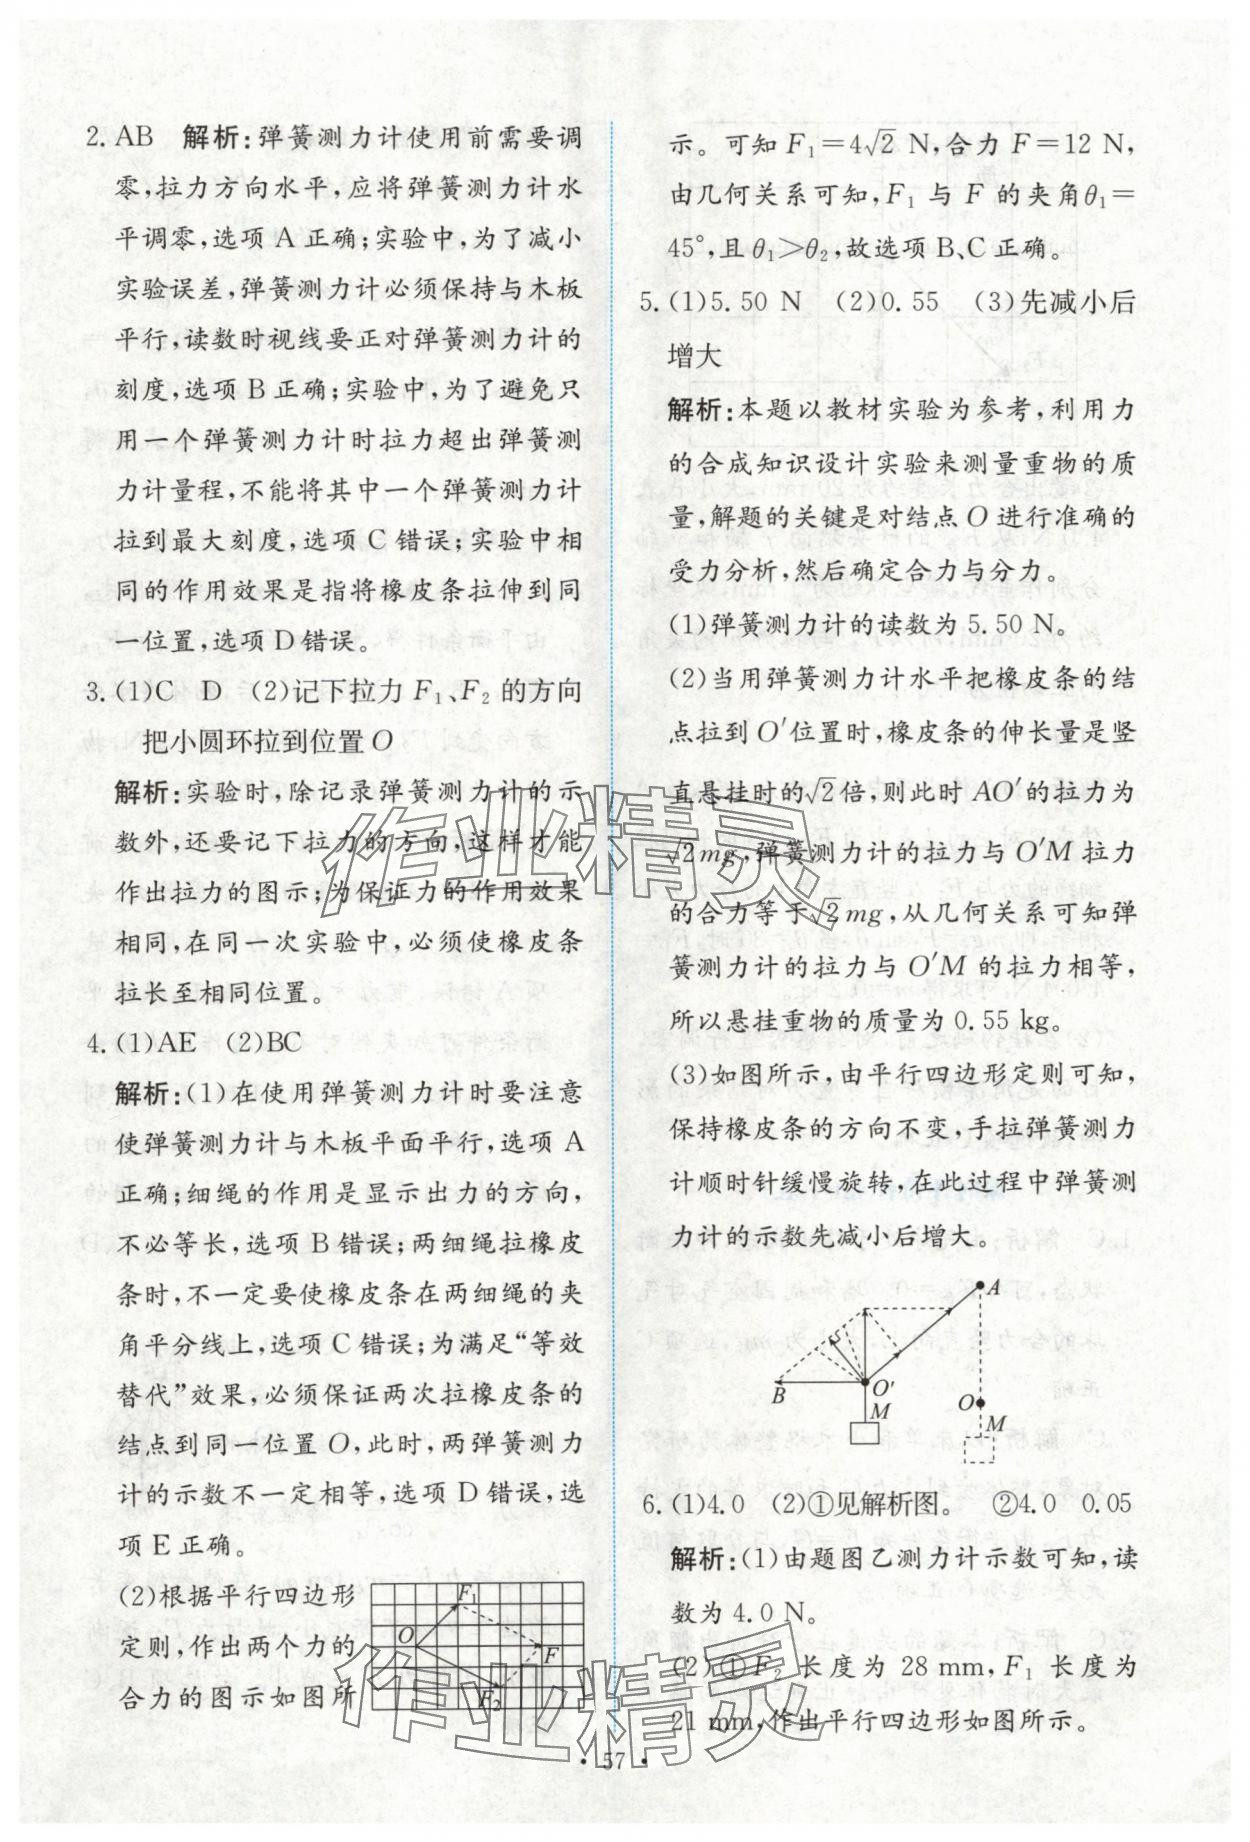 2. AB　解析:弹簧测力计使用前需要调
零,拉力方向水平,应将弹簧测力计水
平调零,选项 A 正确;实验中,为了减小
实验误差,弹簧测力计必须保持与木板
平行,读数时视线要正对弹簧测力计的
刻度,选项 B 正确;实验中,为了避免只
用一个弹簧测力计时拉力超出弹簧测
力计量程,不能将其中一个弹簧测力计
拉到最大刻度,选项 C 错误;实验中相
同的作用效果是指将橡皮条拉伸到同
一位置,选项 D 错误。
3. (1)C　D　(2)记下拉力 F₁、F₂ 的方向
把小圆环拉到位置 O
解析:实验时,除记录弹簧测力计的示
数外,还要记下拉力的方向,这样才能
作出拉力的图示;为保证力的作用效果
相同,在同一次实验中,必须使橡皮条
拉长至相同位置。
4. (1)AE　(2)BC
解析:(1)在使用弹簧测力计时要注意
使弹簧测力计与木板平面平行,选项 A
正确;细绳的作用是显示出力的方向,
不必等长,选项 B 错误;两细绳拉橡皮
条时,不一定要使橡皮条在两细绳的夹
角平分线上,选项 C 错误;为满足“等效
替代”效果,必须保证两次拉橡皮条的
结点到同一位置 O,此时,两弹簧测力
计的示数不一定相等,选项 D 错误,选
项 E 正确。
(2)根据平行四边形
定则,作出两个力的
合力的图示如图所
O F₁ F F₂
示。可知 F₁=4√2 N,合力 F=12 N,
由几何关系可知,F₁ 与 F 的夹角θ₁=
45°,且 θ₁>θ₂,故选项 B、C 正确。
5. (1)5.50 N　(2)0.55　(3)先减小后
增大
解析:本题以教材实验为参考,利用力
的合成知识设计实验来测量重物的质
量,解题的关键是对结点 O 进行准确的
受力分析,然后确定合力与分力。
(1)弹簧测力计的读数为 5.50 N。
(2)当用弹簧测力计水平把橡皮条的结
点拉到 O′位置时,橡皮条的伸长量是竖
直悬挂时的√2倍,则此时 AO′的拉力为
√2mg,弹簧测力计的拉力与 O′M 拉力
的合力等于√2mg,从几何关系可知弹
簧测力计的拉力与 O′M 的拉力相等,
所以悬挂重物的质量为 0.55 kg。
(3)如图所示,由平行四边形定则可知,
保持橡皮条的方向不变,手拉弹簧测力
计顺时针缓慢旋转,在此过程中弹簧测
力计的示数先减小后增大。
A
B O′
M O
M
6. (1)4.0　(2)①见解析图。　②4.0　0.05
解析:(1)由题图乙测力计示数可知,读
数为 4.0 N。
(2)①F₂ 长度为 28 mm,F₁ 长度为
21 mm,作出平行四边形如图所示。
作业精灵
作业精灵
• 57 •